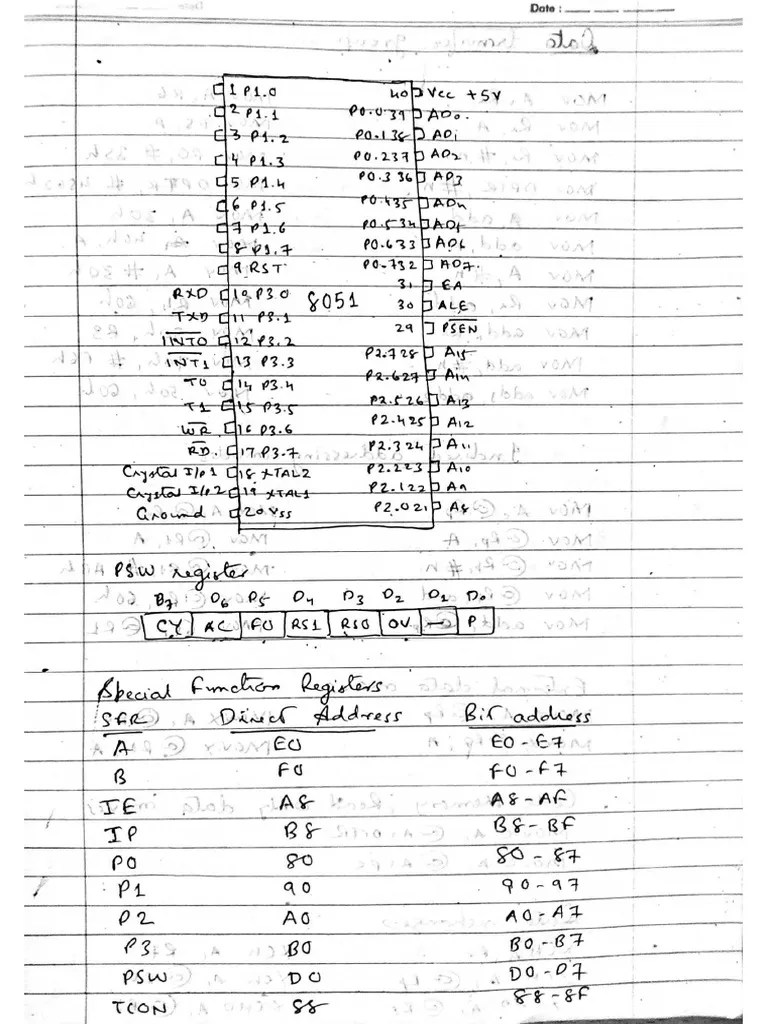 Date :
1 P1.0 40 Vcc +5V
2 P1.1 P0.0 39 AD0
3 P1.2 P0.1 38 AD1
4 P1.3 P0.2 37 AD2
5 P1.4 P0.3 36 AD3
6 P1.5 P0.4 35 AD4
7 P1.6 P0.5 34 AD5
8 P1.7 P0.6 33 AD6
9 RST P0.7 32 AD7
31 EA
RXD 10 P3.0 8051 30 ALE
TXD 11 P3.1 29 PSEN
INT0 12 P3.2 P2.7 28 A15
INT1 13 P3.3 P2.6 27 A14
T0 14 P3.4 P2.5 26 A13
T1 15 P3.5 P2.4 25 A12
WR 16 P3.6 P2.3 24 A11
RD 17 P3.7 P2.2 23 A10
Crystal I/p 1 18 XTAL2 P2.1 22 A9
Crystal I/p 2 19 XTAL1 P2.0 21 A8
Ground 20 Vss
PSW register
B7 D6 D5 D4 D3 D2 D1 D0
CY AC F0 RS1 RS0 OV — P
Special Function Registers
SFR Direct Address Bit address
A E0 E0-E7
B F0 F0-F7
IE A8 A8-AF
IP B8 B8-BF
P0 80 80-87
P1 90 90-97
P2 A0 A0-A7
P3 B0 B0-B7
PSW D0 D0-D7
TCON 88 88-8F